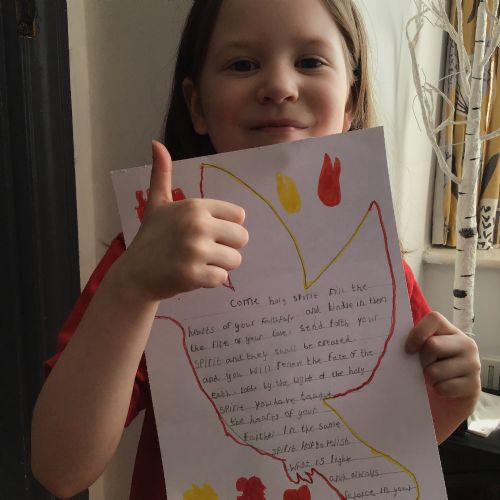 Come holy spirit fill the
hearts of your faithful and kindle in them
the fire of your love. Send forth your
spirit and they shall be created
and you will renew the face of the
earth. Lorde by the light of the holy
spirit you have taught
the hearts of your
faithful In the same
spirit help to relish
what is right
and always
rejoice in your